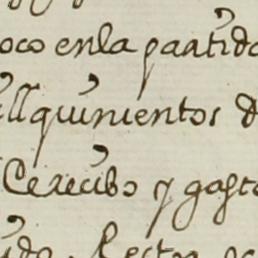 oco enla partido
ill quinientos d
Cerecibo y gasto
ido. Rector